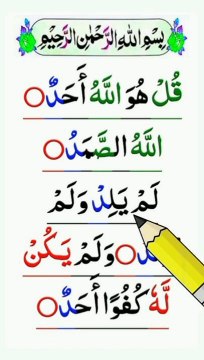 بِسْمِ اللهِ الرَّحْمٰنِ الرَّحِيْمِ
قُلْ هُوَ اللّٰهُ أَحَدٌ
اَللّٰهُ الصَّمَدُ
لَمْ يَلِدْ وَلَمْ
وَلَمْ يَكُنْ
لَّهٗ كُفُوًا أَحَدٌ